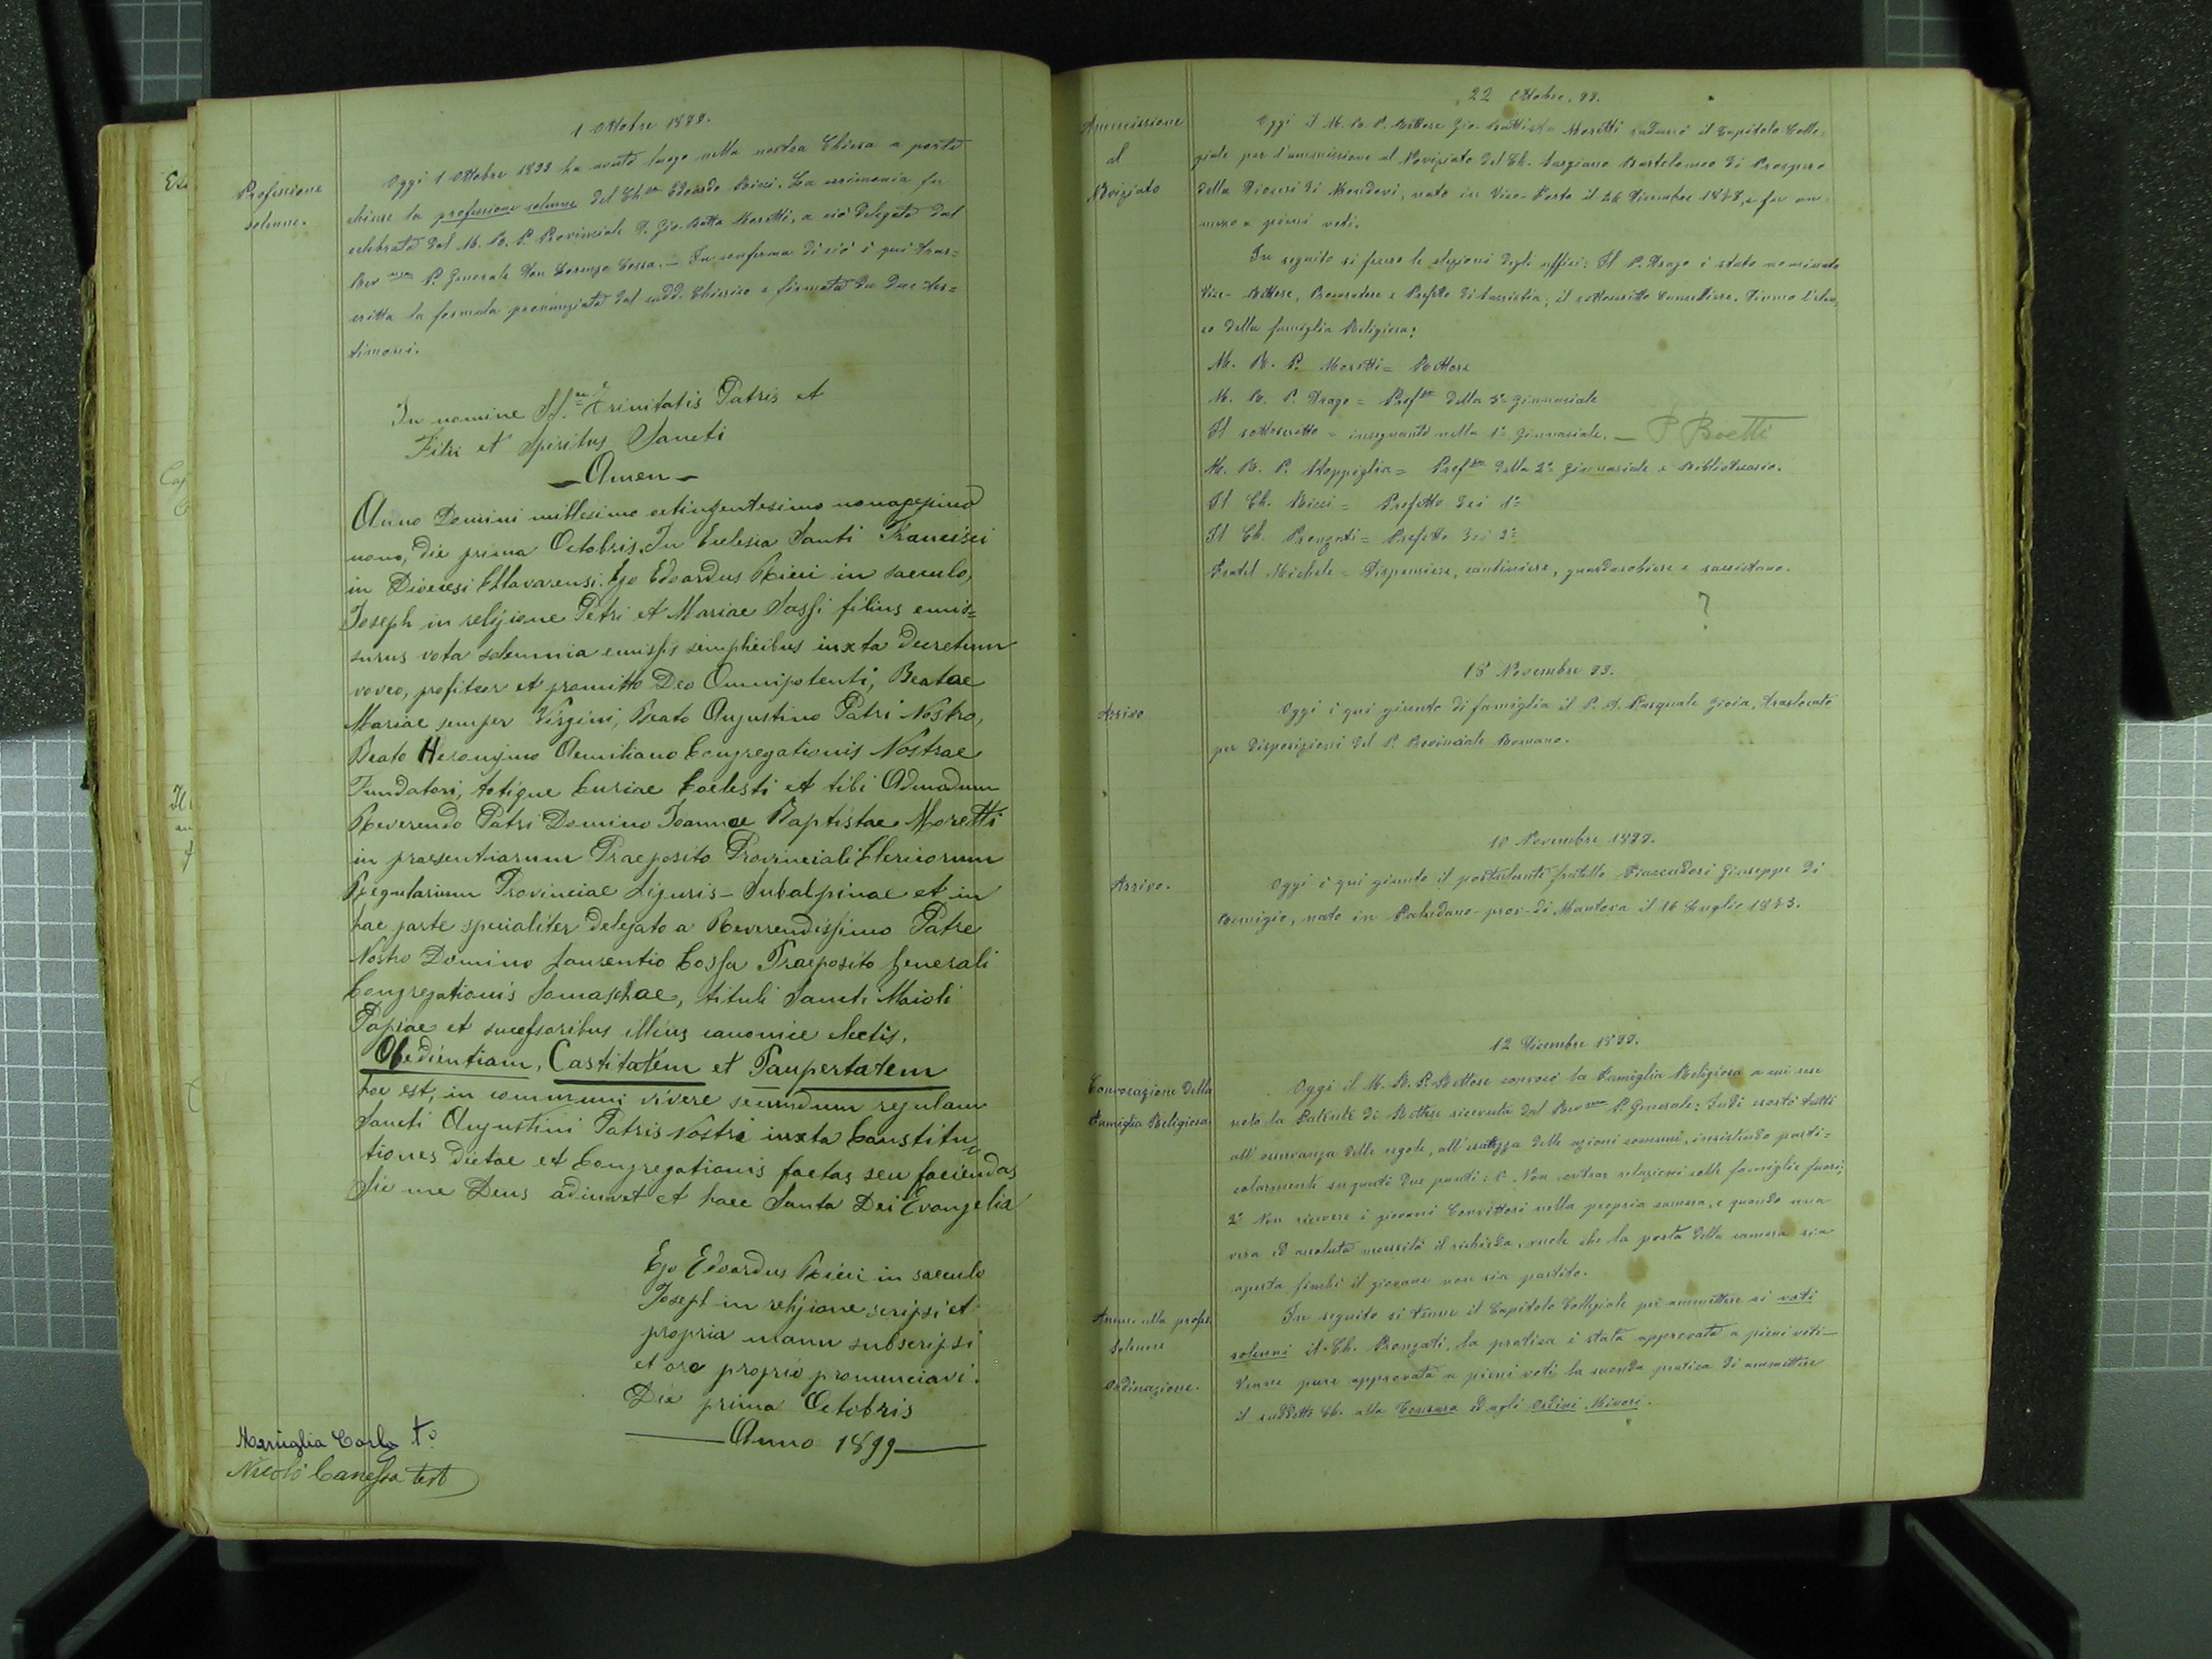 1 Ottobre 1899.
Professione
solenne.
Oggi 1 Ottobre 1899 ha avuto luogo nella nostra Chiesa a porte
chiuse la professione solenne del Ch.co Edoardo Ricci. La cerimonia fu
celebrata dal M. R. P. Provinciale D. Gio. Batta Moretti, a ciò delegato dal
Rev.mo P. Generale Don Lorenzo Cossa. — In conferma di ciò è qui tras=
critta la formula pronunziata dal sudd. Chierico e firmata da due tes=
timoni.
In nomine SS.ae Trinitatis Patris et
Filii et Spiritus Sancti
— Amen —
Anno Domini millesimo octingentesimo nonagesimo
nono, die prima Octobris. In Ecclesia Santi Francisci
in Diocesi Clavarensi. Ego Edoardus Ricci in saeculo,
Joseph in religione Petri et Mariae Sassi filius emis=
surus vota solemnia emissis simplicibus iuxta decretum
voveo, profiteor et promitto Deo Omnipotenti, Beatae
Mariae semper Virgini, Beato Augustino Patri Nostro,
Beato Heronymo Aemiliano Congregationis Nostrae
Fundatori, totique Curiae Coelesti et tibi Admodum
Reverendo Patri Domino Joannae Baptistae Moretti
in praesentiarum Praeposito Provinciali Clericorum
Regularium Provinciae Liguris-Subalpinae et in
hac parte specialiter delegato a Reverendissimo Patre
Nostro Domino Laurentio Cossa Praeposito Generali
Congregationis Somaschae, tituli Sancti Maioli
Papiae et successoribus illius canonice electis,
Obedientiam, Castitatem et Paupertatem
hoc est, in communi vivere secundum regulam
Sancti Augustini Patris Nostri iuxta Constitu
tiones dictae et Congregationis factas seu faciendas
Sic me Deus adiuvet et haec Santa Dei Evangelia
Ego Edoardus Ricci in saeculo
Joseph in religione scripsi et
propria manu subscripsi
et ore proprio pronunciavi.
Die prima Octobris
Anno 1899
Carlo t°
Nicolò Canessa test
22 Ottobre. 99.
Ammissione
al
Noviziato
Oggi il M. R. P. Rettore Gio. Battista Moretti radunò il Capitolo Colle=
giale per l'ammissione al Noviziato del Ch. Bartolomeo di Prospero
della Diocesi di Mondovì, nato in Vico-Forte il 26 Dicembre 1878, e fu am=
messo a pieni voti.
In seguito si fecero le elezioni degli uffici: Il P. Drago è stato nominato
Vice-Rettore, Procuratore e Prefetto di Sacristia; il sottoscritto Cancelliere. Diamo l'elen
co della famiglia Religiosa:
M. R. P. Moretti = Rettore
M. R. P. Drago = Prof.re della 3a Ginnasiale
Il sottoscritto = insegnante nella 1a Ginnasiale. — P Boetti
M. R. P. Stoppiglia = Prof.re della 2a Ginnasiale e Bibliotecario.
Il Ch. Ricci = Prefetto dei 1i
Il Ch. Pronzati = Prefetto dei 2i
Fratel Michele = Dispensiere, cantiniere, guardarobiere e sacristano.
?
15 Novembre 99.
Arrivo
Oggi è qui giunto di famiglia il P. D. Pasquale Gioia, traslocato
per disposizioni del P. Provinciale Romano.
10 Novembre 1899.
Arrivo.
Oggi è qui giunto il postulante fratello Giuseppe di
Remigio, nato in Paludano prov. di Mantova il 16 Luglio 1873.
12 Dicembre 1899.
Convocazione della
Famiglia Religiosa
Oggi il M. R. P. Rettore convocò la Famiglia Religiosa a cui rese
nota la Patente di Rettore ricevuta dal Rev.mo P. Generale; Indi esortò tutti
all'osservanza delle regole, all'esattezza delle azioni comuni, insistendo parti=
colarmente su questi due punti: 1° Non contrar relazioni colle famiglie fuori;
2° Non ricevere i giovani Convittori nella propria camera, e quando una
vera ed assoluta necessità il richieda, vuole che la porta della camera sia
aperta finchè il giovane non sia partito.
Amm. alla profes.
Solenne
In seguito si tenne il Capitolo Collegiale per ammettere ai voti
solenni il Ch. Pronzati, la pratica è stata approvata a pieni voti —
Ordinazione.
Venne pure approvata a pieni voti la seconda pratica di ammettere
il suddetto Ch. alla Tonsura ed agli Ordini Minori.